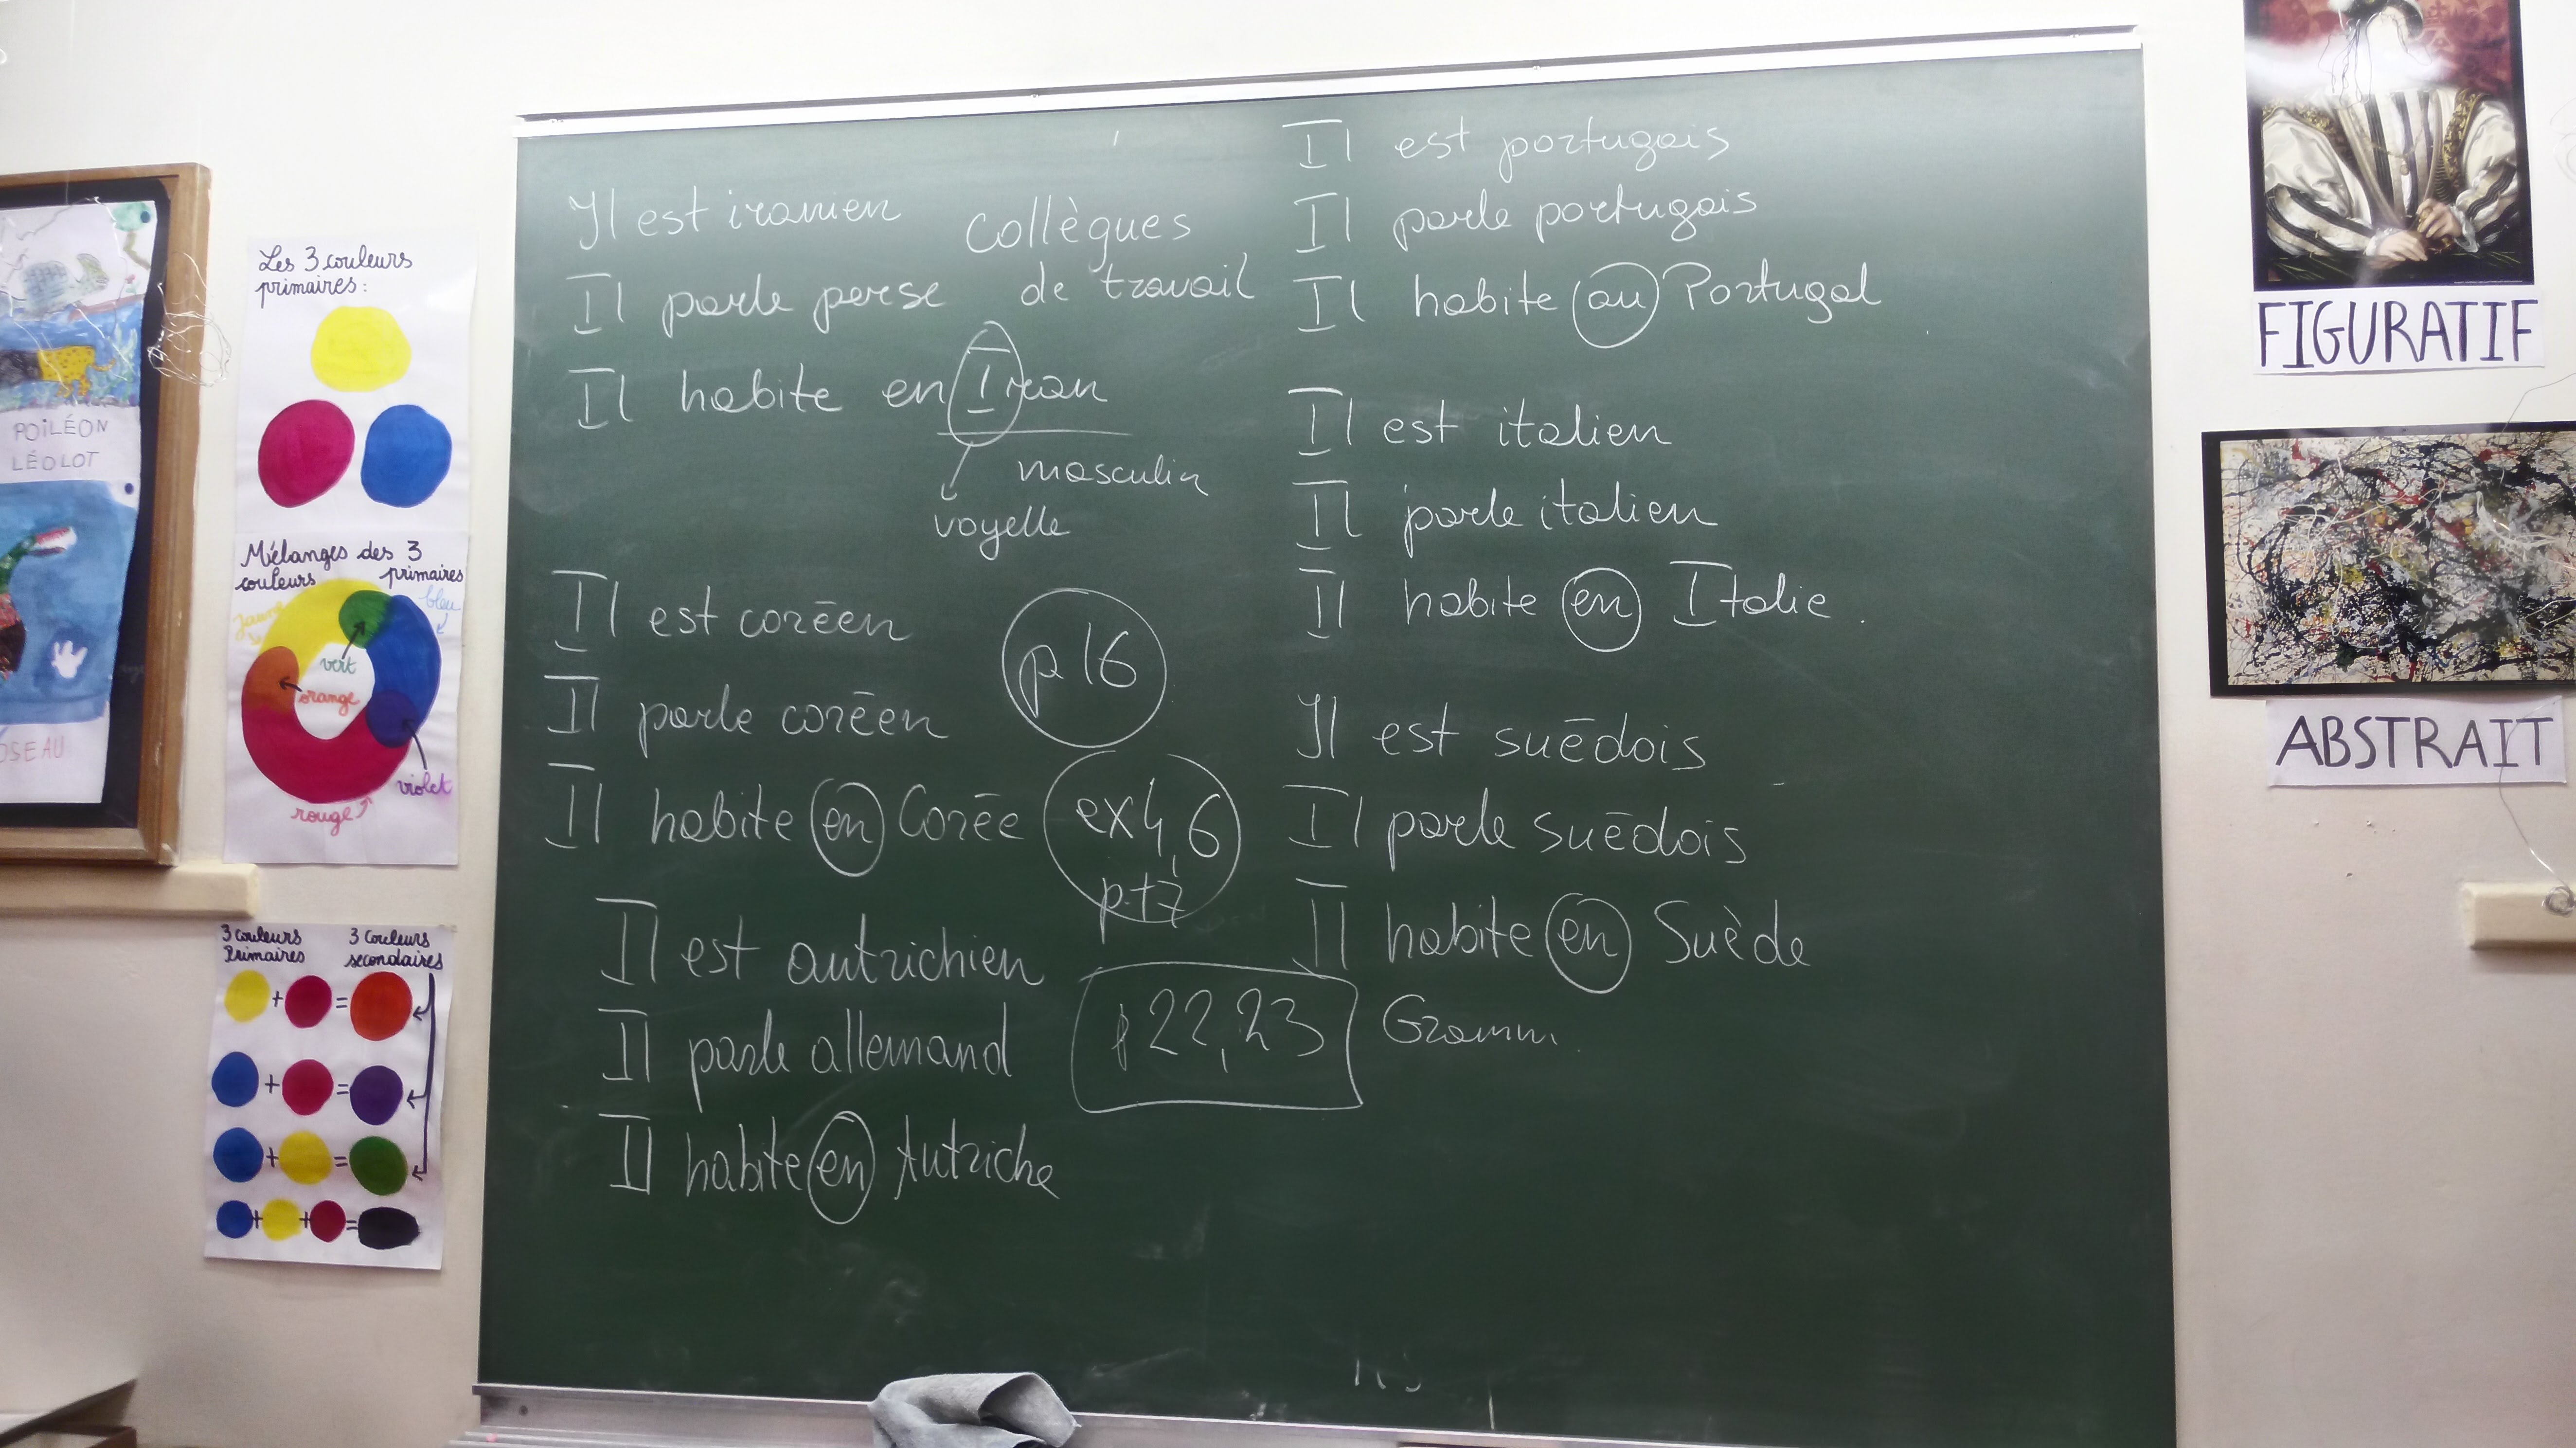 POILÉON
LÉOLOT
OSEAU
Les 3 couleurs
primaires:
Mélanges des 3
couleurs primaires
jaune
bleu
vert
orange
violet
rouge
3 couleurs
Primaires
3 couleurs
secondaires
+ =
+ =
+ =
+ + =
Il est iranien
Il parle perse
Il habite en Iran
masculin
voyelle
collègues
de travail
Il est coréen
Il parle coréen
Il habite en Corée
p 16
ex 4, 6
p 17
Il est autrichien
Il parle allemand
Il habite en Autriche
p 22, 23
Gramm.
Il est portugais
Il parle portugais
Il habite au Portugal
Il est italien
Il parle italien
Il habite en Italie.
Il est suédois
Il parle suédois
Il habite en Suède
FIGURATIF
ABSTRAIT